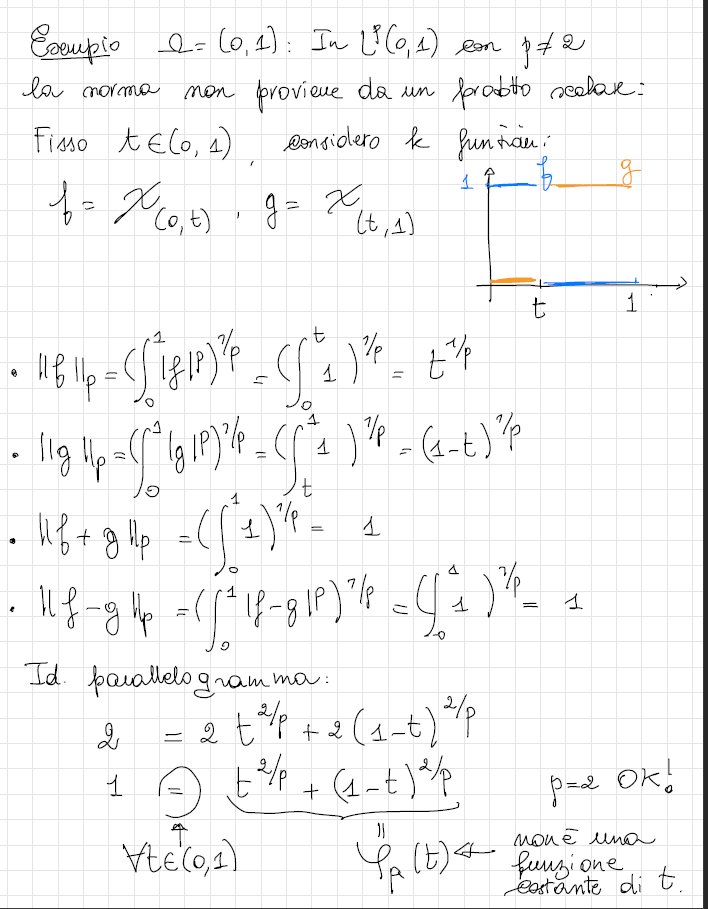 Esempio Ω = (0,1): In L^p(0,1) con p ≠ 2
la norma non proviene da un prodotto scalare:
Fisso t ∈ (0,1), considero le funzioni:
f = χ_(0,t) , g = χ_(t,1)
1 f g
t 1
• ||f||_p = (∫_0^1 |f|^p)^1/p = (∫_0^t 1)^1/p = t^1/p
• ||g||_p = (∫_0^1 |g|^p)^1/p = (∫_t^1 1)^1/p = (1-t)^1/p
• ||f+g||_p = (∫_0^1 1)^1/p = 1
• ||f-g||_p = (∫_0^1 |f-g|^p)^1/p = (∫_0^1 1)^1/p = 1
Id. parallelogramma:
2 = 2 t^2/p + 2 (1-t)^2/p
1 = t^2/p + (1-t)^2/p p=2 OK!
∀t∈(0,1) = φ_p(t) ⇐ non è una
funzione
costante di t.